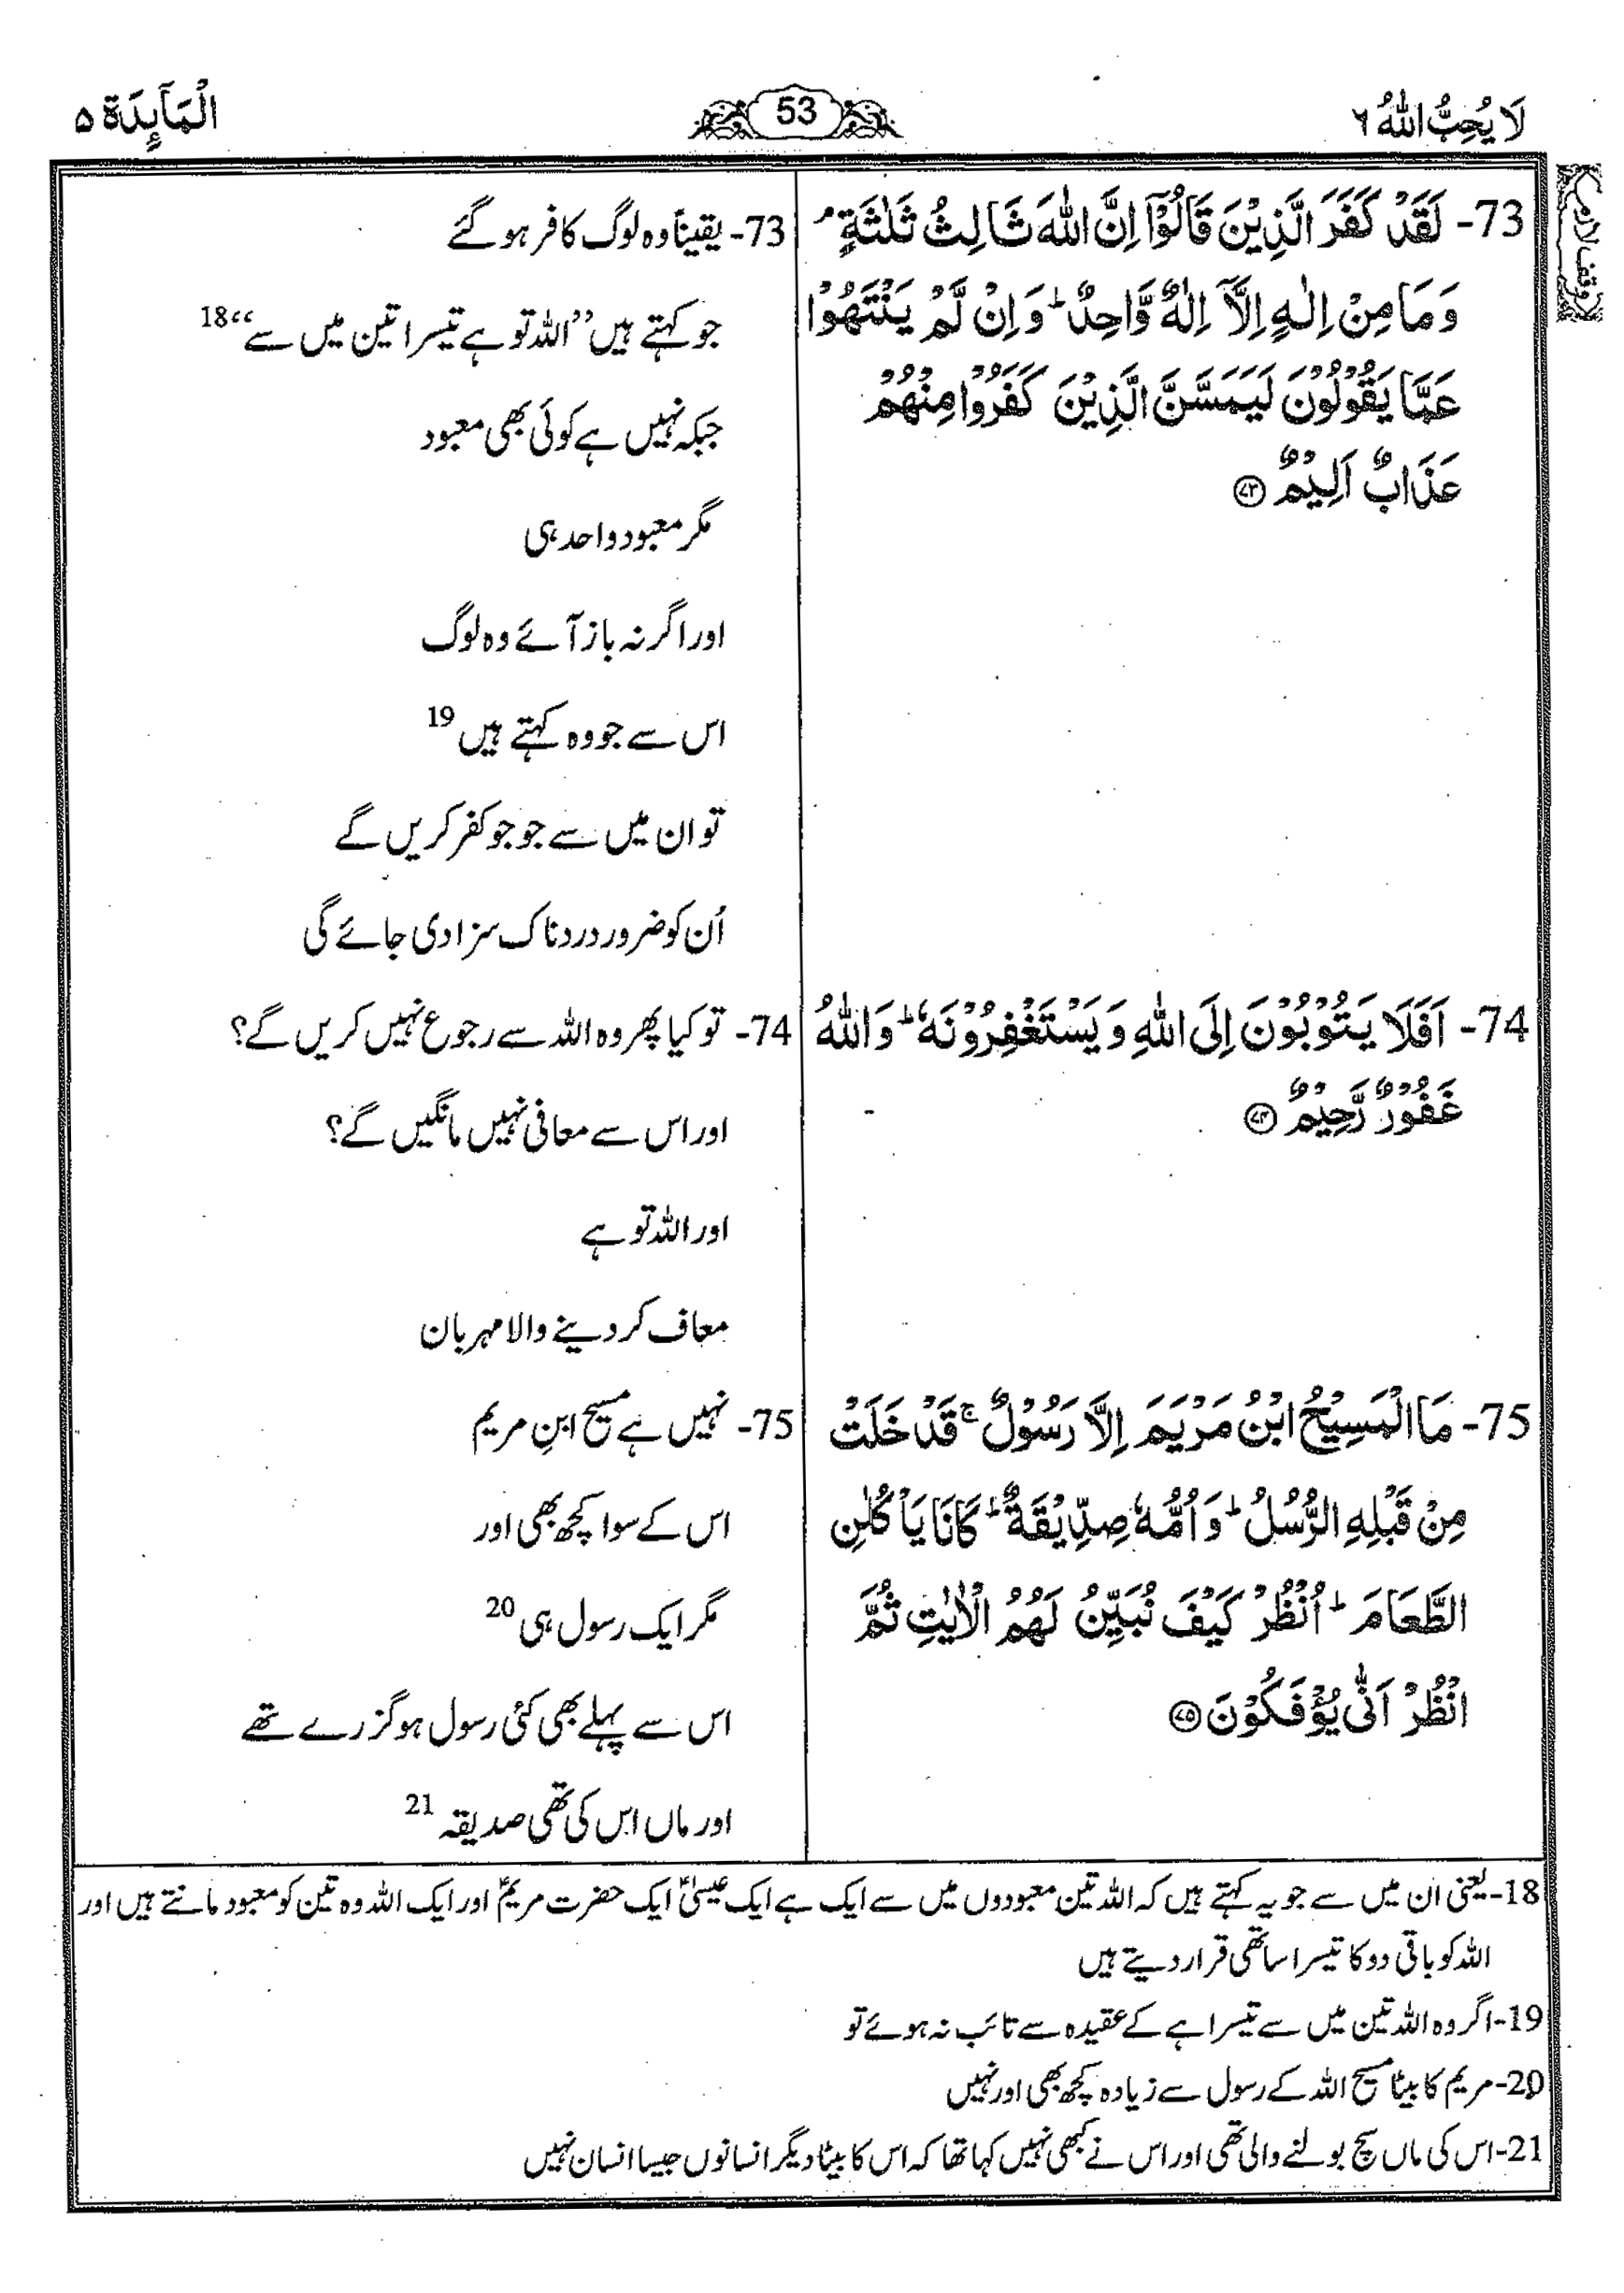 لَا يُحِبُّ اللهُ ٦
53
الْمَآئِدَة ٥
وقف لازم
73- لَقَدْ كَفَرَ الَّذِيْنَ قَالُوْٓا اِنَّ اللهَ ثَالِثُ ثَلٰثَةٍ ۘ
وَمَا مِنْ اِلٰهٍ اِلَّآ اِلٰهٌ وَّاحِدٌ ؕ وَاِنْ لَّمْ يَنْتَهُوْا
عَمَّا يَقُوْلُوْنَ لَيَمَسَّنَّ الَّذِيْنَ كَفَرُوْا مِنْهُمْ
عَذَابٌ اَلِيْمٌ ﴿۷۳﴾
74- اَفَلَا يَتُوْبُوْنَ اِلَى اللهِ وَيَسْتَغْفِرُوْنَهٗ ؕ وَاللهُ
غَفُوْرٌ رَّحِيْمٌ ﴿۷۴﴾
75- مَا الْمَسِيْحُ ابْنُ مَرْيَمَ اِلَّا رَسُوْلٌ ۚ قَدْ خَلَتْ
مِنْ قَبْلِهِ الرُّسُلُ ؕ وَاُمُّهٗ صِدِّيْقَةٌ ؕ كَانَا يَاْكُلٰنِ
الطَّعَامَ ؕ اُنْظُرْ كَيْفَ نُبَيِّنُ لَهُمُ الْاٰيٰتِ ثُمَّ
انْظُرْ اَنّٰى يُؤْفَكُوْنَ ﴿۷۵﴾
73- یقیناً وہ لوگ کافر ہوگئے
جو کہتے ہیں ’’اللہ تو ہے تیسرا تین میں سے‘‘ 18
جبکہ نہیں ہے کوئی بھی معبود
مگر معبود واحد ہی
اور اگر نہ باز آئے وہ لوگ
اس سے جو وہ کہتے ہیں 19
تو ان میں سے جو جو کفر کریں گے
اُن کو ضرور دردناک سزا دی جائے گی
74- تو کیا پھر وہ اللہ سے رجوع نہیں کریں گے؟
اور اس سے معافی نہیں مانگیں گے؟
اور اللہ تو ہے
معاف کر دینے والا مہربان
75- نہیں ہے مسیح ابنِ مریم
اس کے سوا کچھ بھی اور
مگر ایک رسول ہی 20
اس سے پہلے بھی کئی رسول ہو گزرے تھے
اور ماں اس کی تھی صدیقہ 21
18- یعنی ان میں سے جو یہ کہتے ہیں کہ اللہ تین معبودوں میں سے ایک ہے ایک عیسیٰؑ ایک حضرت مریمؑ اور ایک اللہ وہ تین کو معبود مانتے ہیں اور
اللہ کو باقی دو کا تیسرا ساتھی قرار دیتے ہیں
19- اگر وہ اللہ تین میں سے تیسرا ہے کے عقیدہ سے تائب نہ ہوئے تو
20- مریم کا بیٹا مسیح اللہ کے رسول سے زیادہ کچھ بھی اور نہیں
21- اس کی ماں سچ بولنے والی تھی اور اس نے کبھی نہیں کہا تھا کہ اس کا بیٹا دیگر انسانوں جیسا انسان نہیں